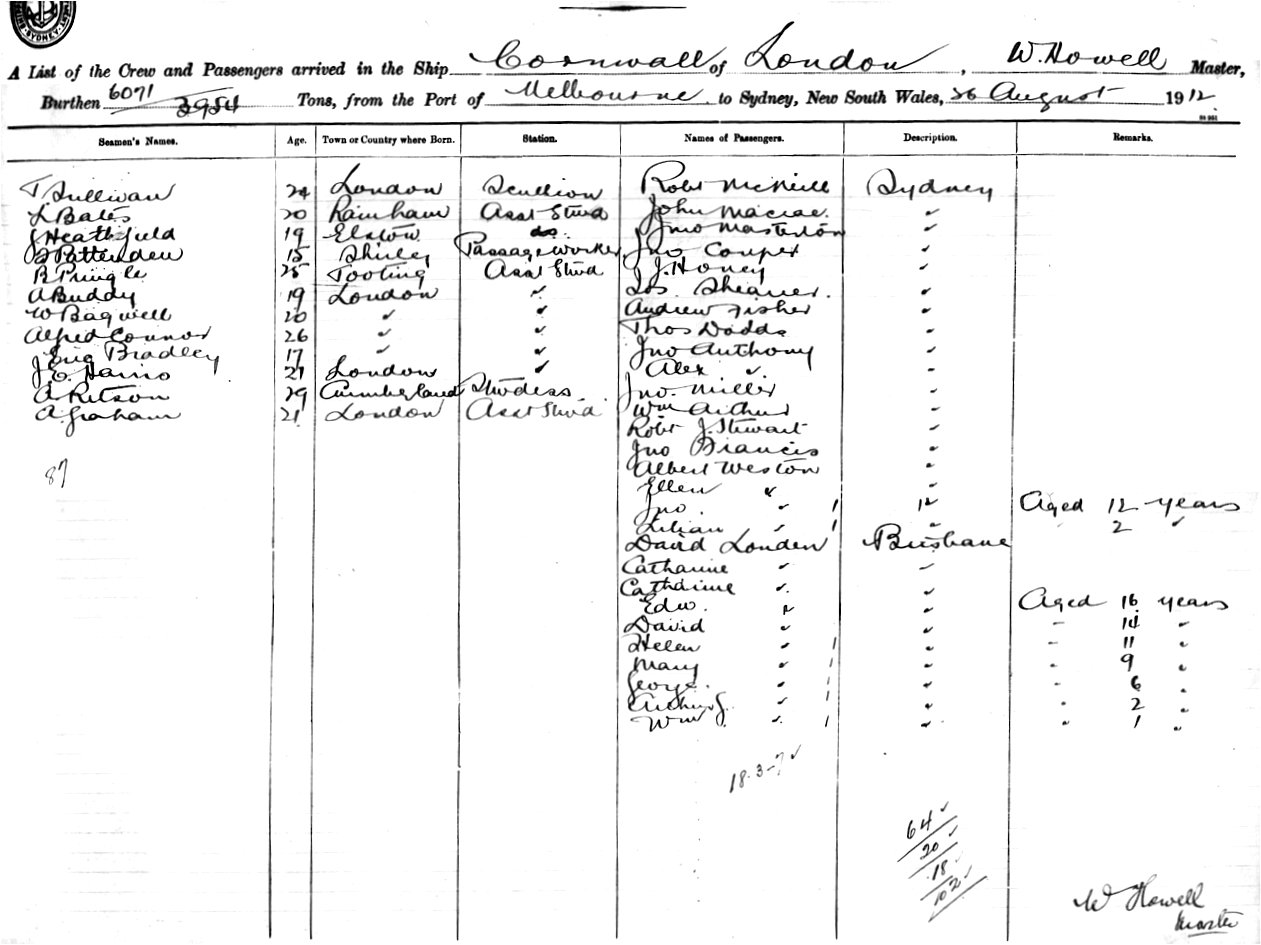 SYDNEY
A List of the Crew and Passengers arrived in the Ship Cornwall of London, W. Howell Master,
Burthen 6071 3954 Tons, from the Port of Melbourne to Sydney, New South Wales, 26 August 1912
Seamen's Names. Age. Town or Country where Born. Station. Names of Passengers. Description. Remarks.
T Sullivan 24 London Scullion Robt McNeill Sydney
L Bates 20 Rainham Asst Stwd John Macrae "
J Heathfield 19 Elstow do Jno Masterton "
B Pattenden 15 Shirley Passage Worker Jno Couper "
B Pringle 25 Tooting Asst Stwd J. J. Honey "
A Buddy 19 London " Jas Shearer "
W Bagwell 20 " " Andrew Fisher "
Alfred Connor 26 " " Thos Dodds "
Eric Bradley 17 " " Jno Anthony "
J. E. Harris 21 London " Alex " "
A Ritson 29 Cumberland Stwdess Jno. Miller "
A. Graham 21 London Asst Stwd Wm Arthur "
Robt J. Stewart "
Jno Francis "
87 Albert Weston "
Ellen " "
Jno. " 1 12 Aged 12 years
Lilian " 1 " " 2 "
David Louden Brisbane
Catharine " "
Catharine " "
Edw. " " Aged 16 years
David " " " 14 "
Helen " 1 " " 11 "
Mary " 1 " " 9 "
George " 1 " " 6 "
Arthur J. " 1 " " 2 "
Wm " 1 " " 1 "
18-3-7
64
20
18
102
W Howell
Master